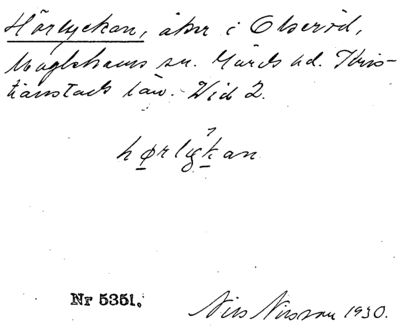 Hörlyckan, åker i Olseröd,
Maglehems sn. Gärds hd. Kris-
tianstads län. Hid 2.
hørlykan
Nr 5351.
Nils Nilsson 1930.